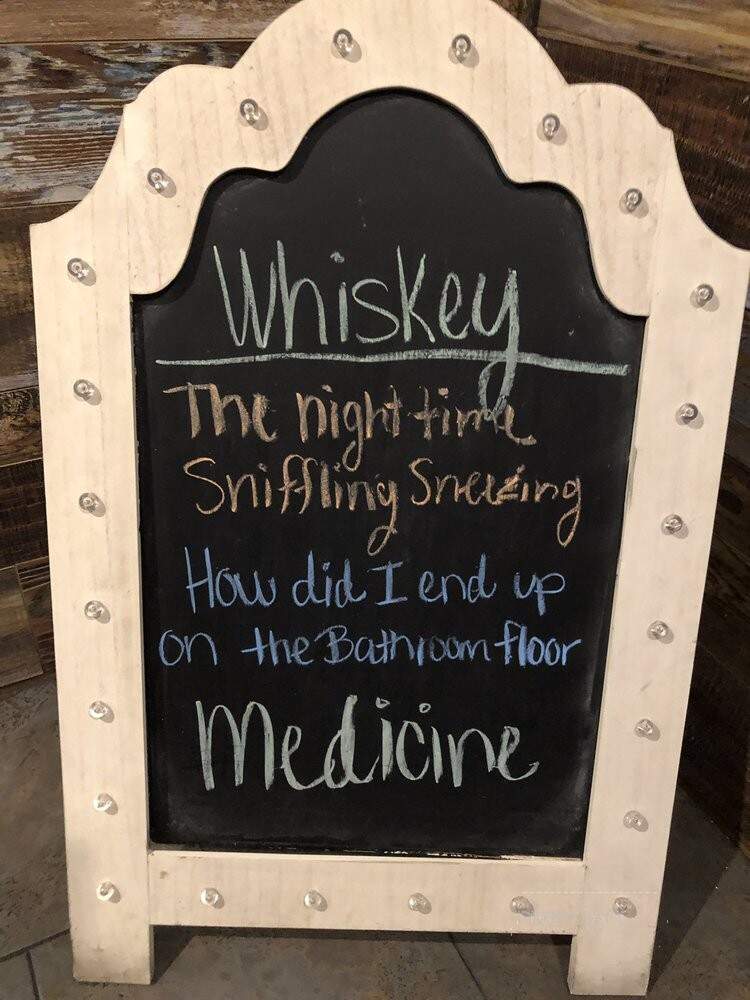 Whiskey
The night time
Sniffling Sneezing
How did I end up
on the Bathroom floor
Medicine